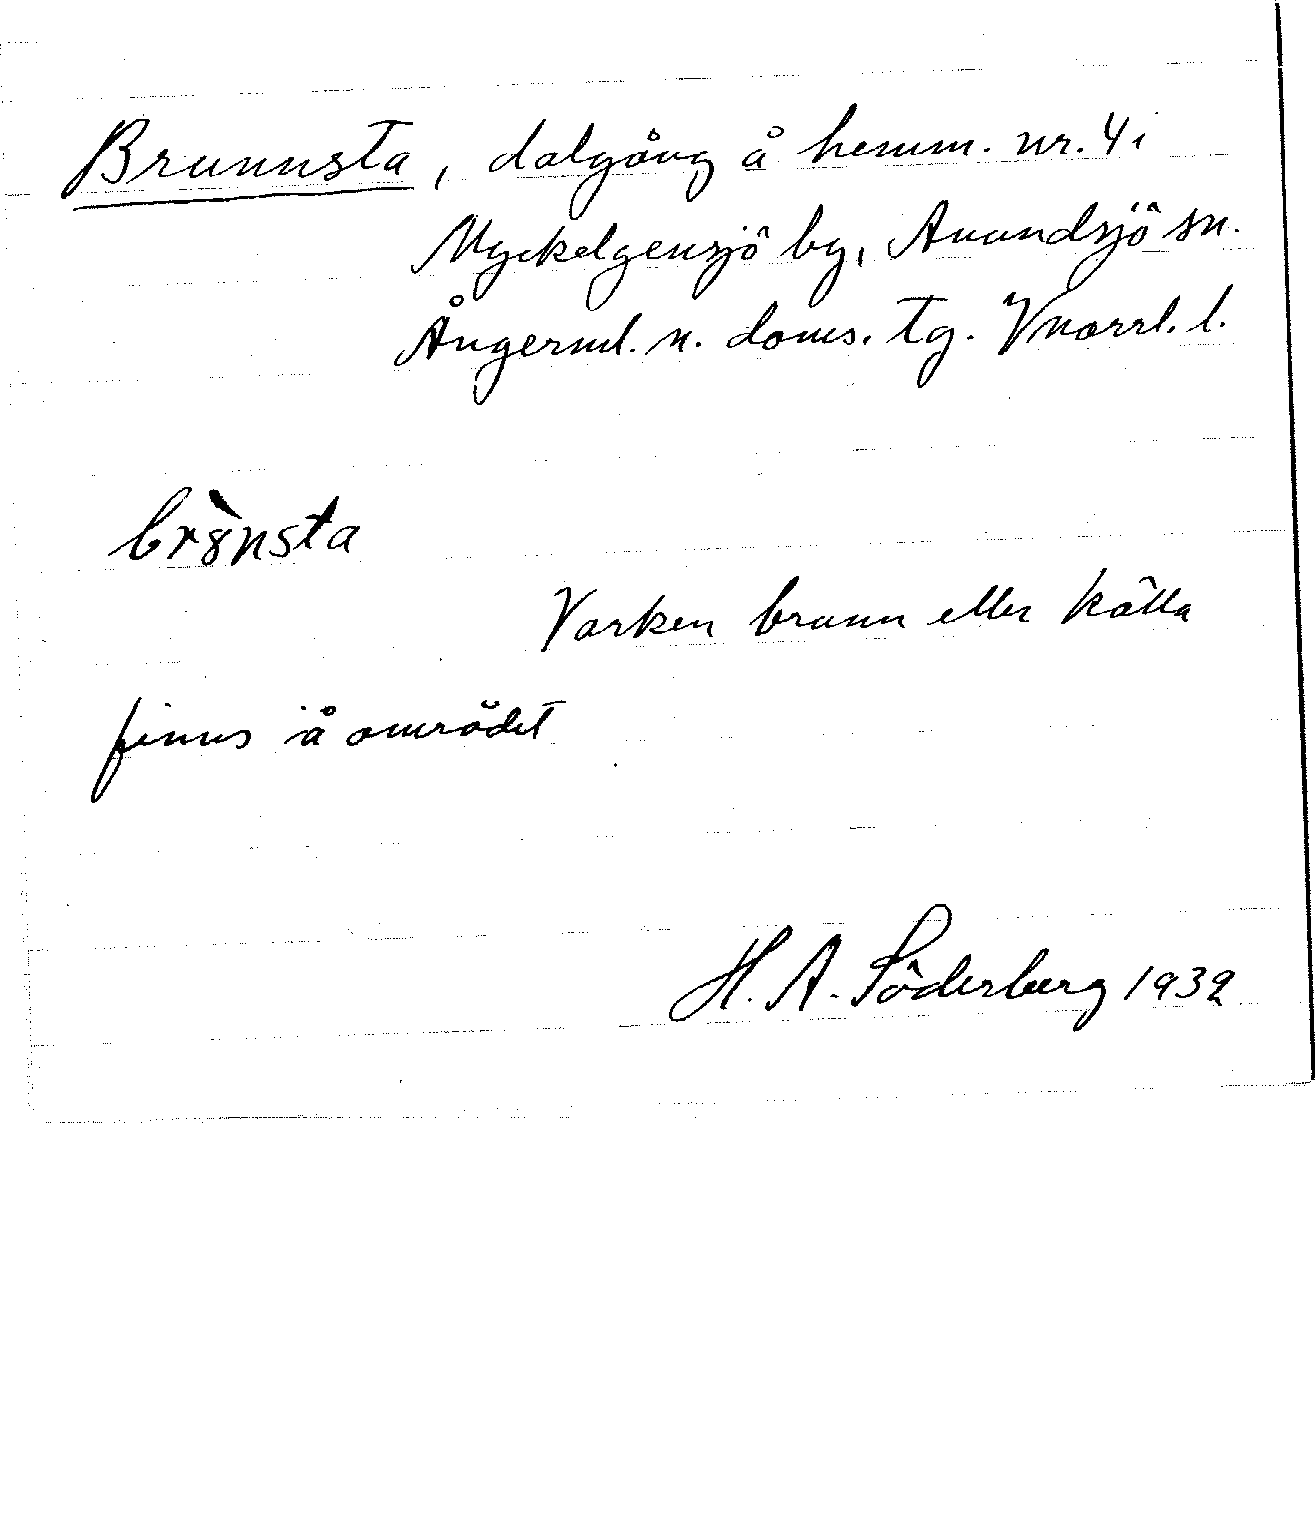 Brunnsta, dalgång å hemm. nr. 4 i
Myckelgensjö by, Anundsjö sn.
Ångerml. n. doms. tg. Vnorrl. l.
br8̀nsta
Varken brunn eller källa
finns å området
H. A. Söderberg 1932